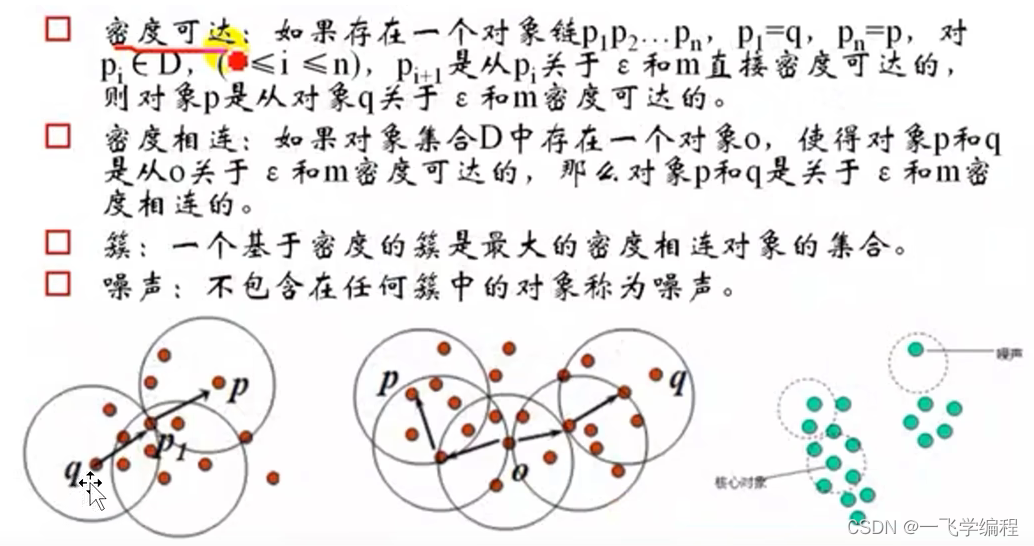 密度可达：如果存在一个对象链p1p2…pn，p1=q，pn=p，对
pi∈D，( ≤i ≤n)，pi+1是从pi关于 ε和m直接密度可达的，
则对象p是从对象q关于 ε和m密度可达的。
密度相连：如果对象集合D中存在一个对象o，使得对象p和q
是从o关于 ε和m密度可达的，那么对象p和q是关于 ε和m密
度相连的。
簇：一个基于密度的簇是最大的密度相连对象的集合。
噪声：不包含在任何簇中的对象称为噪声。
p
q
p1
p
q
o
噪声
核心对象
CSDN @一飞学编程